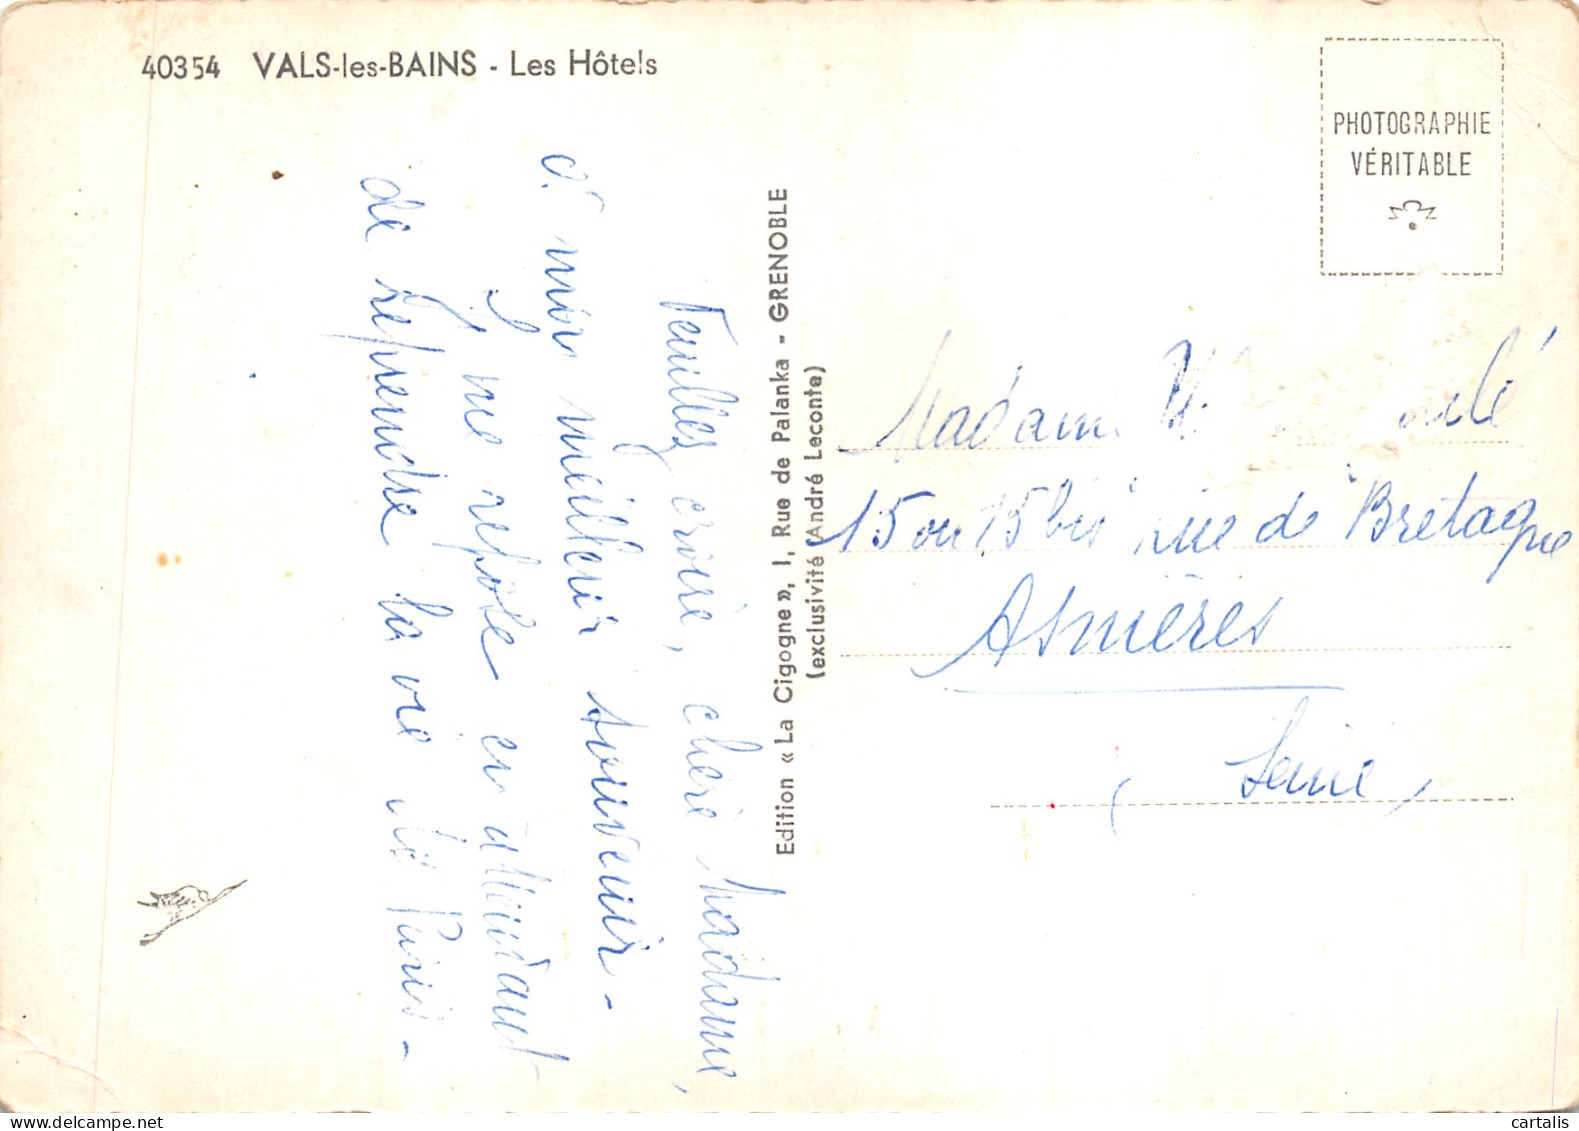 40354 VALS-les-BAINS - Les Hôtels
PHOTOGRAPHIE
VÉRITABLE
Veuillez croire, chère Madame,
à mon meilleur souvenir -
Je me repose en attendant
de reprendre la vie de Paris -
Edition « La Cigogne », 1, Rue de Palanka - GRENOBLE
(exclusivité André Leconte)
Madam
15 ou 15 bis rue de Bretagne
Asnières
(Seine)
cartalis